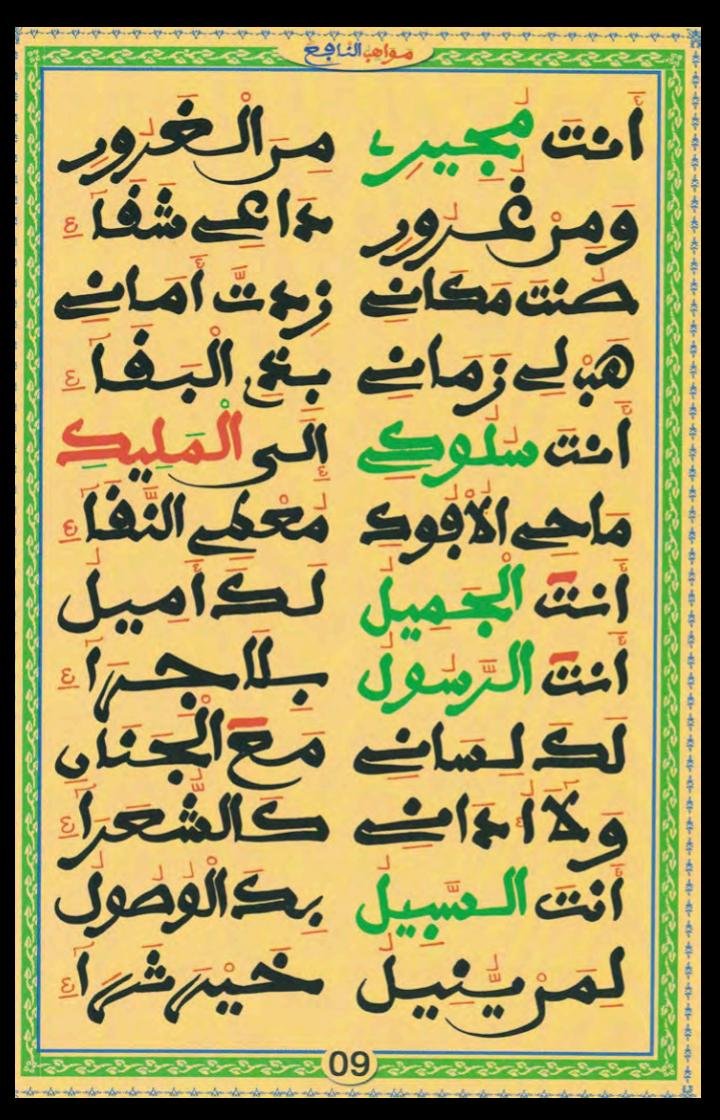 مواهب النافع
أَنتَ مُجِيرِے مِنَ الْغُرُورِ
وَمِنْ غُرُورٍ دَاعِے شَفَآءِ
صُنتَ مَكَانِے زِدتَّ أَمَانِے
هَبْ لِے زَمَانِے بِنَحْيِ الْبَقَآءِ
أَنتَ سُلُوكِے إِلَى الْمَلِيكِ
مَاحِے الْأُفُوكِ مُعْطِے النَّقَآءِ
أَنتَ الْجَمِيلُ لَكَ أَمِيلُ
أَنتَ الرَّسُولُ بِلَا جِرَآءِ
لَكَ لِسَانِے مَعَ الْجَنَانِ
وَلَآ أُدَانِے كَالشُّعَرَآءِ
أَنتَ السَّبِيلُ بِكَ الْوُصُولُ
لِمَنْ يُنِيلُ خَيْرَ شِرَآءِ
09